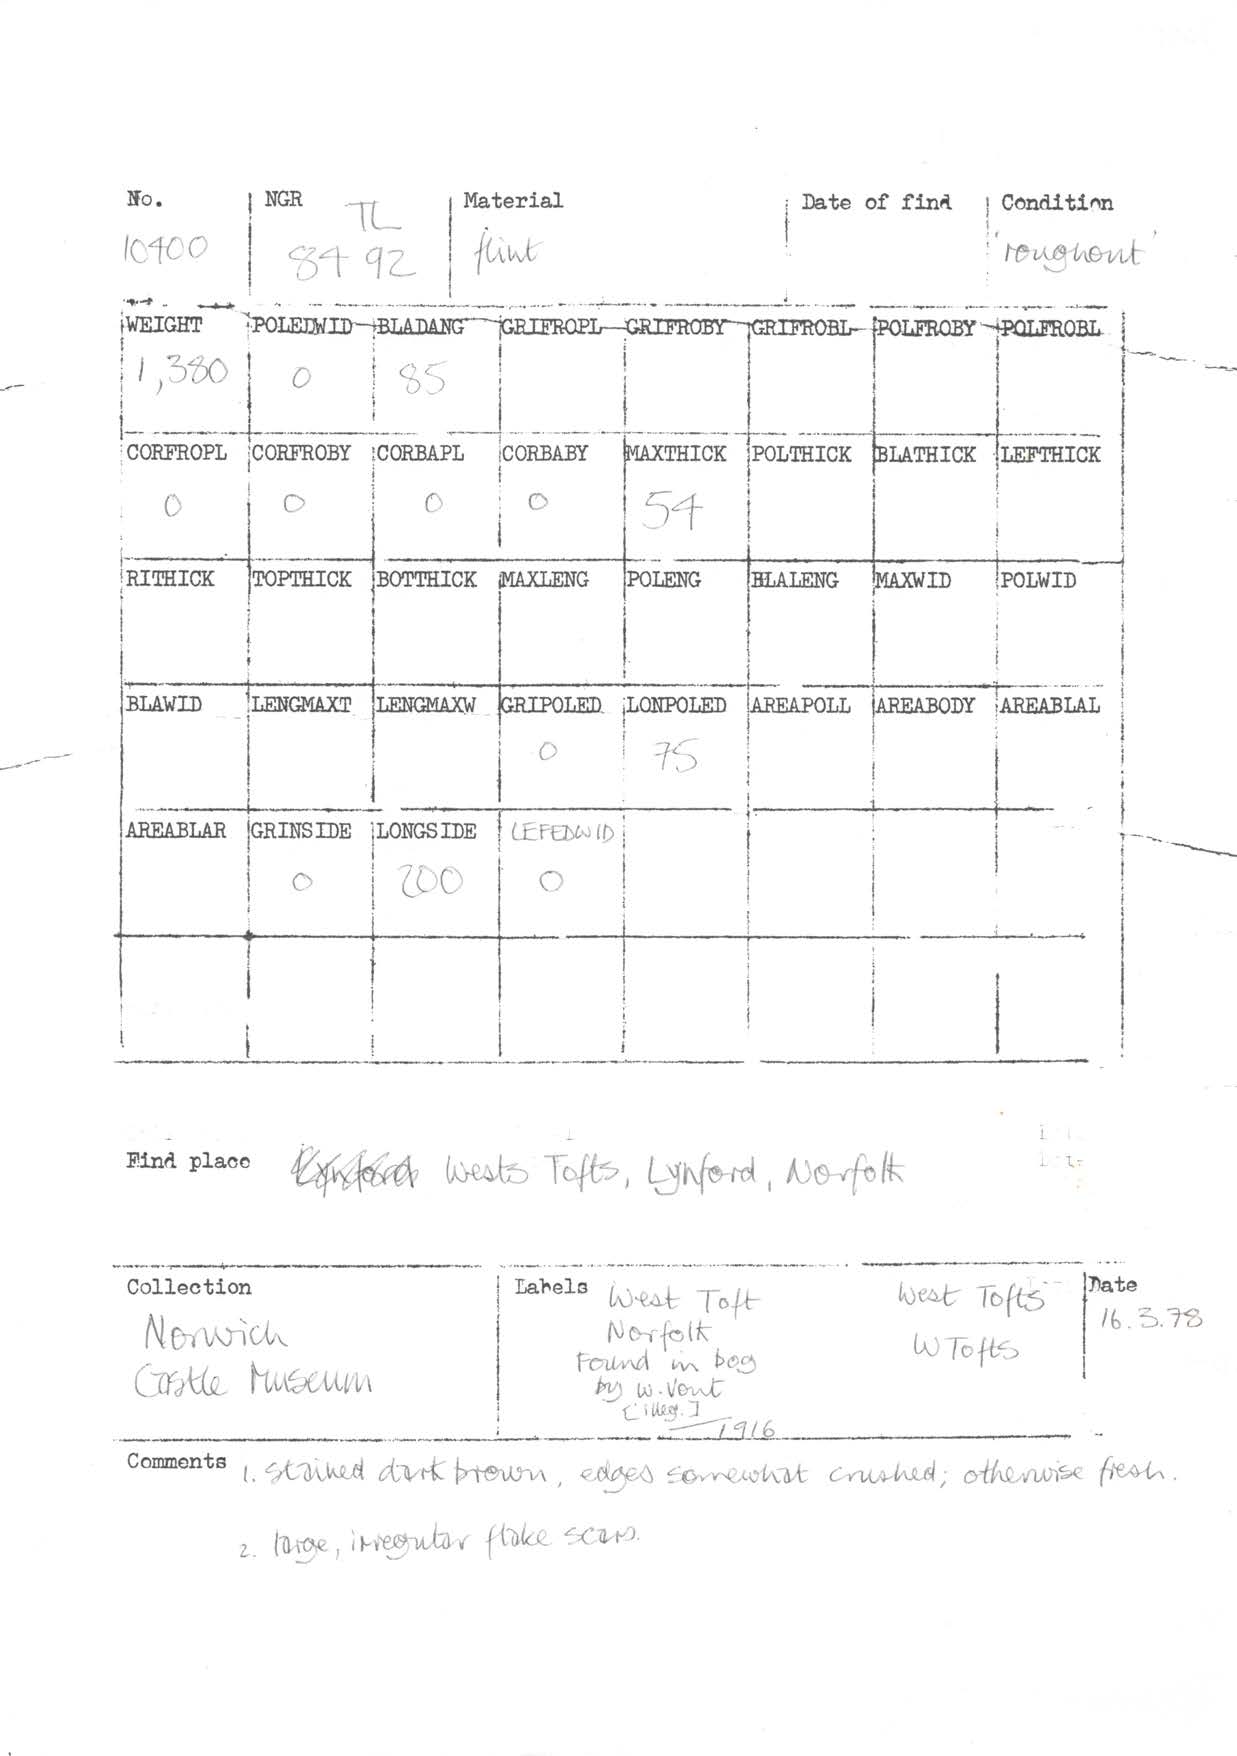 No. NGR Material Date of find Condition
10400 TL 84 92 flint 'roughout'
WEIGHT POLEDWID BLADANG GRIFROPL GRIFROBY GRIFROBL POLFROBY POLFROBL
1,380 0 85
CORFROPL CORFROBY CORBAPL CORBABY MAXTHICK POLTHICK BLATHICK LEFTHICK
0 0 0 0 54
RITHICK TOPTHICK BOTTHICK MAXLENG POLENG BLALENG MAXWID POLWID
BLAWID LENGMAXT LENGMAXW GRIPOLED LONPOLED AREAPOLL AREABODY AREABLAL
0 75
AREABLAR GRINSIDE LONGSIDE LEFEDWID
0 200 0
Find place Lynford Wests Tofts, Lynford, Norfolk
Collection
Norwich
Castle Museum
Labels West Toft
Norfolk
Found in bog
by W. Vout
[illeg.]
1916
West Tofts
W Tofts
Date
16.3.78
Comments 1. stained dark brown, edges somewhat crushed; otherwise fresh.
2. large, irregular flake scars.